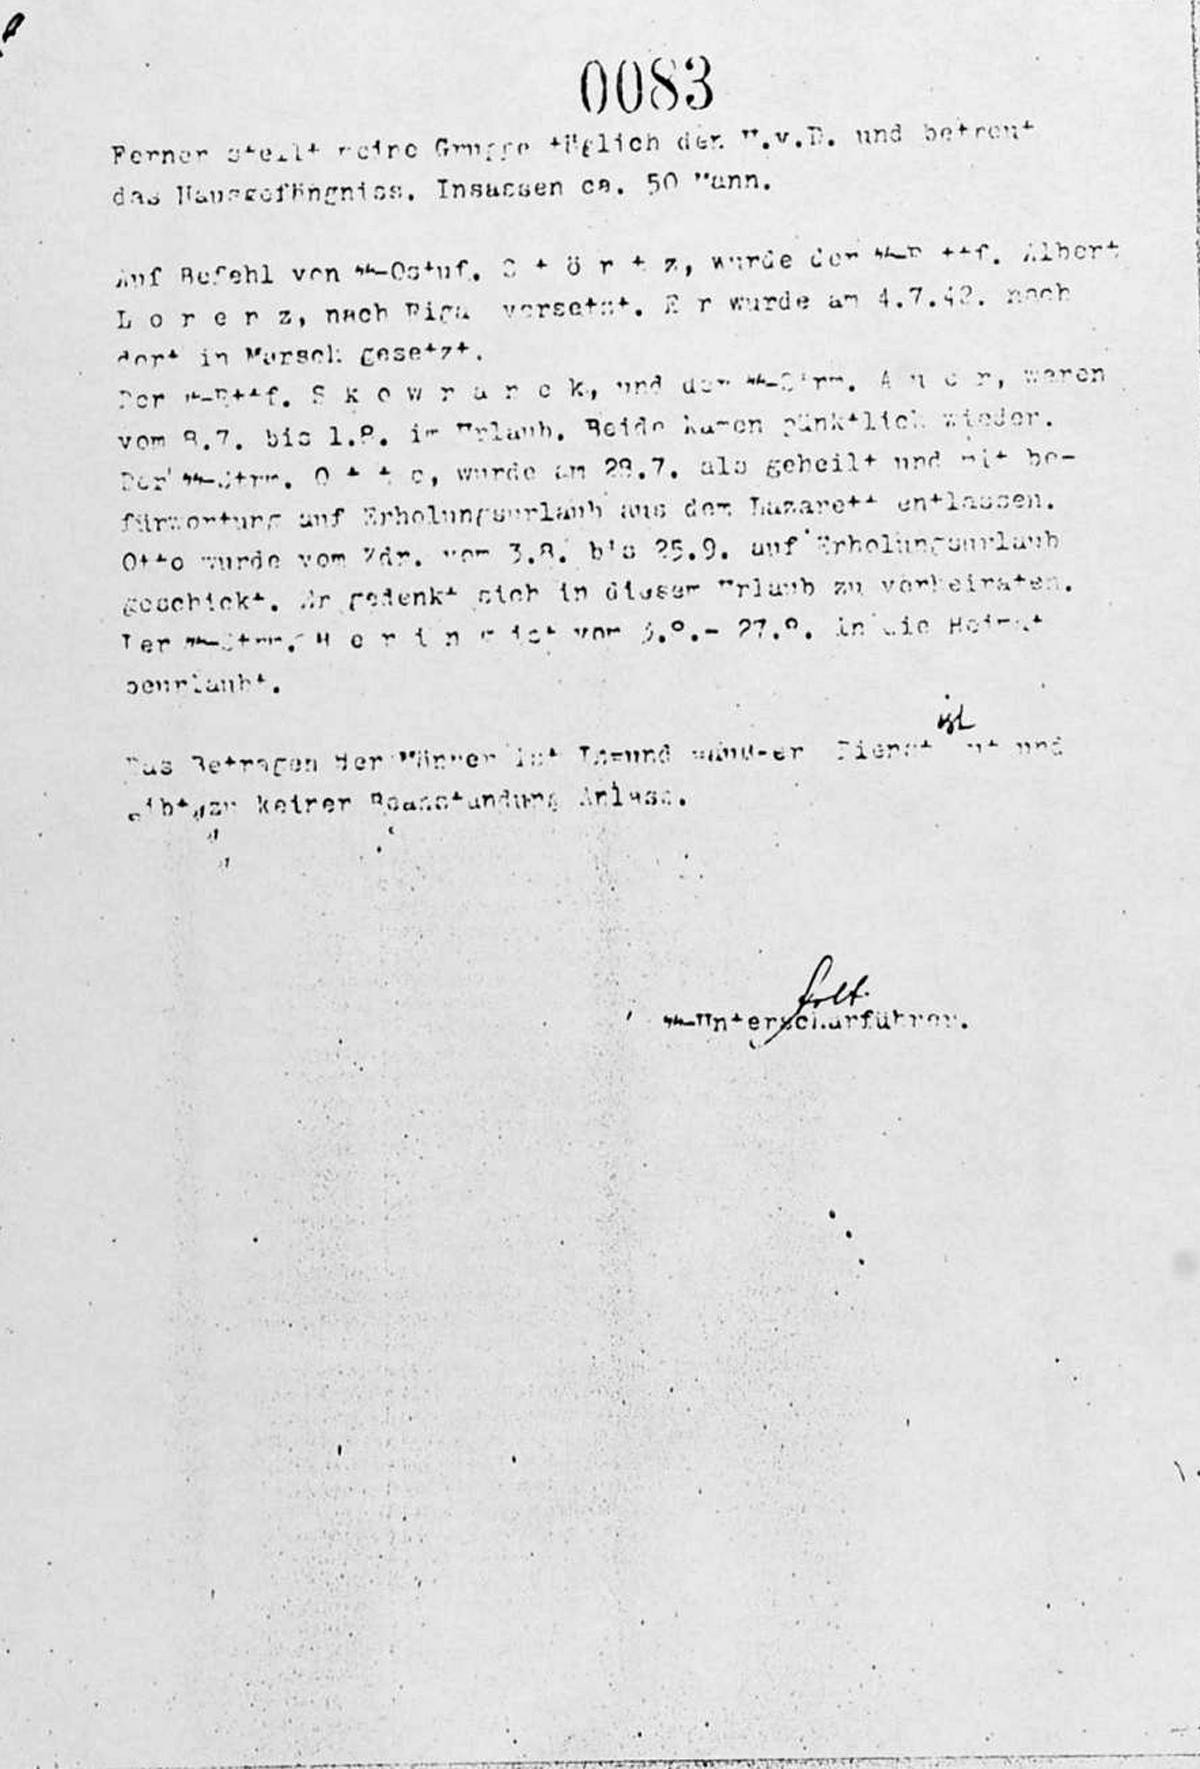 0083
Ferner stellt meine Gruppe täglich den U.v.D. und betreut
das Hausgefängniss. Insassen ca. 50 Mann.
Auf Befehl von SS-Ostuf. S t ö r t z, wurde der SS-Rttf. Albert
L o r e n z, nach Riga versetzt. E r wurde am 4.7.42. nach
dort in Marsch gesetzt.
Der SS-Rttf. S k o w r a n e k, und der SS-Strm. A u e r, waren
vom 8.7. bis 1.8. im Urlaub. Beide kamen pünktlich wieder.
Der SS-Strm. O t t o, wurde am 28.7. als geheilt und mit be-
fürwortung auf Erholungsurlaub aus dem Lazarett entlassen.
Otto wurde vom Kdr. vom 3.8. bis 25.9. auf Erholungsurlaub
geschickt. Er gedenkt sich in dieser Urlaub zu verheiraten.
Der SS-Strm. H e r i n g ist vom 27.8. in die Heimat
beurlaubt.
ist
Das Betragen der Männer In-und Dienst gut und
gibt zu keiner Beanstandung Anlass.
SS-Unterscharführer.